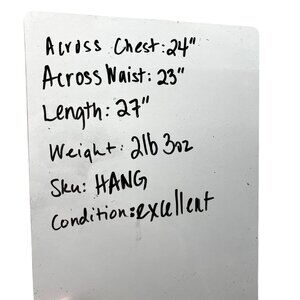 Across Chest: 24"
Across Waist: 23"
Length: 27"
Weight: 2lb 3oz
Sku: HANG
Condition: excellent